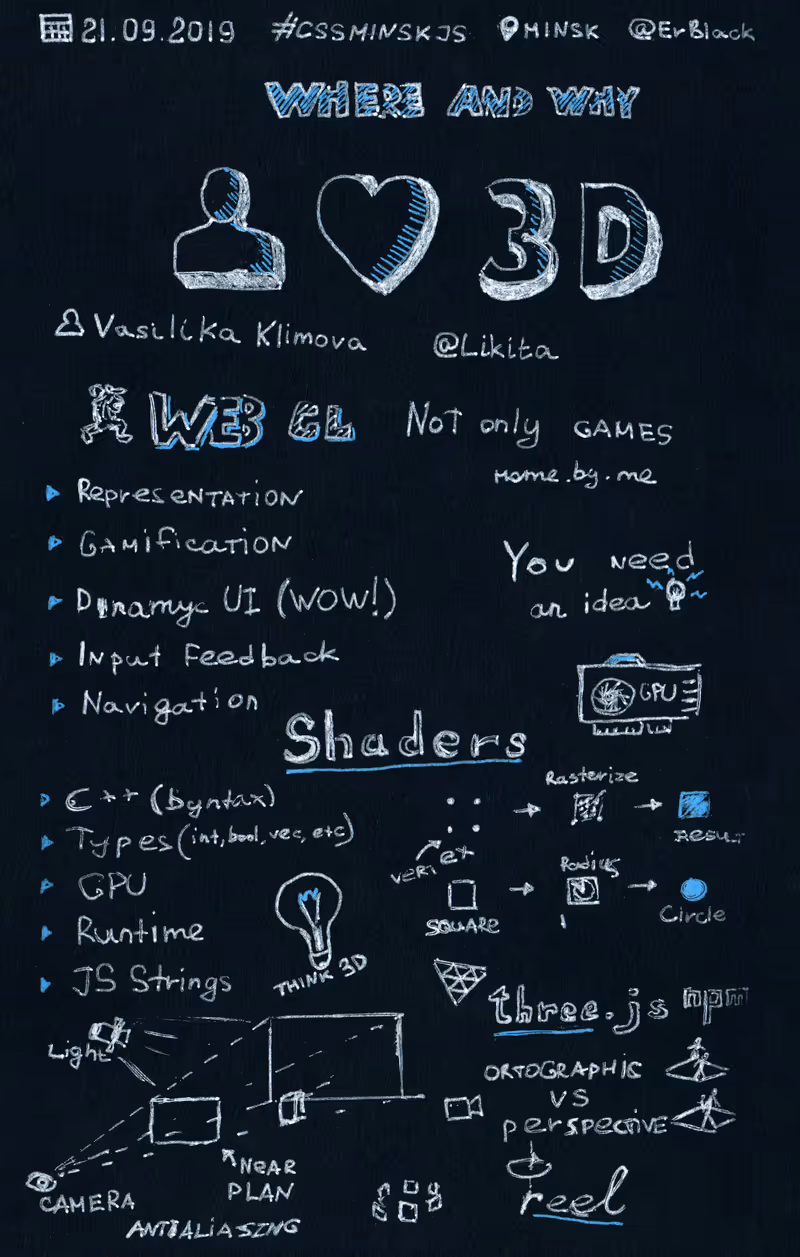 21.09.2019 #CSSMINSKJS MINSK @ErBlack
WHERE AND WHY
3D
Vasilika Klimova @Likita
WEB GL Not only GAMES
Home.by.me
Representation
Gamification
Dynamyc UI (WOW!)
Input Feedback
Navigation
You need
an idea
GPU
Shaders
C++ (Syntax)
Types (int, bool, vec, etc)
GPU
Runtime
JS Strings
THINK 3D
Rasterize
Result
vertex
Radius
SQUARE
Circle
three.js npm
ORTOGRAPHIC
VS
perspective
Light
NEAR
PLAN
CAMERA
ANTIALIASING
reel